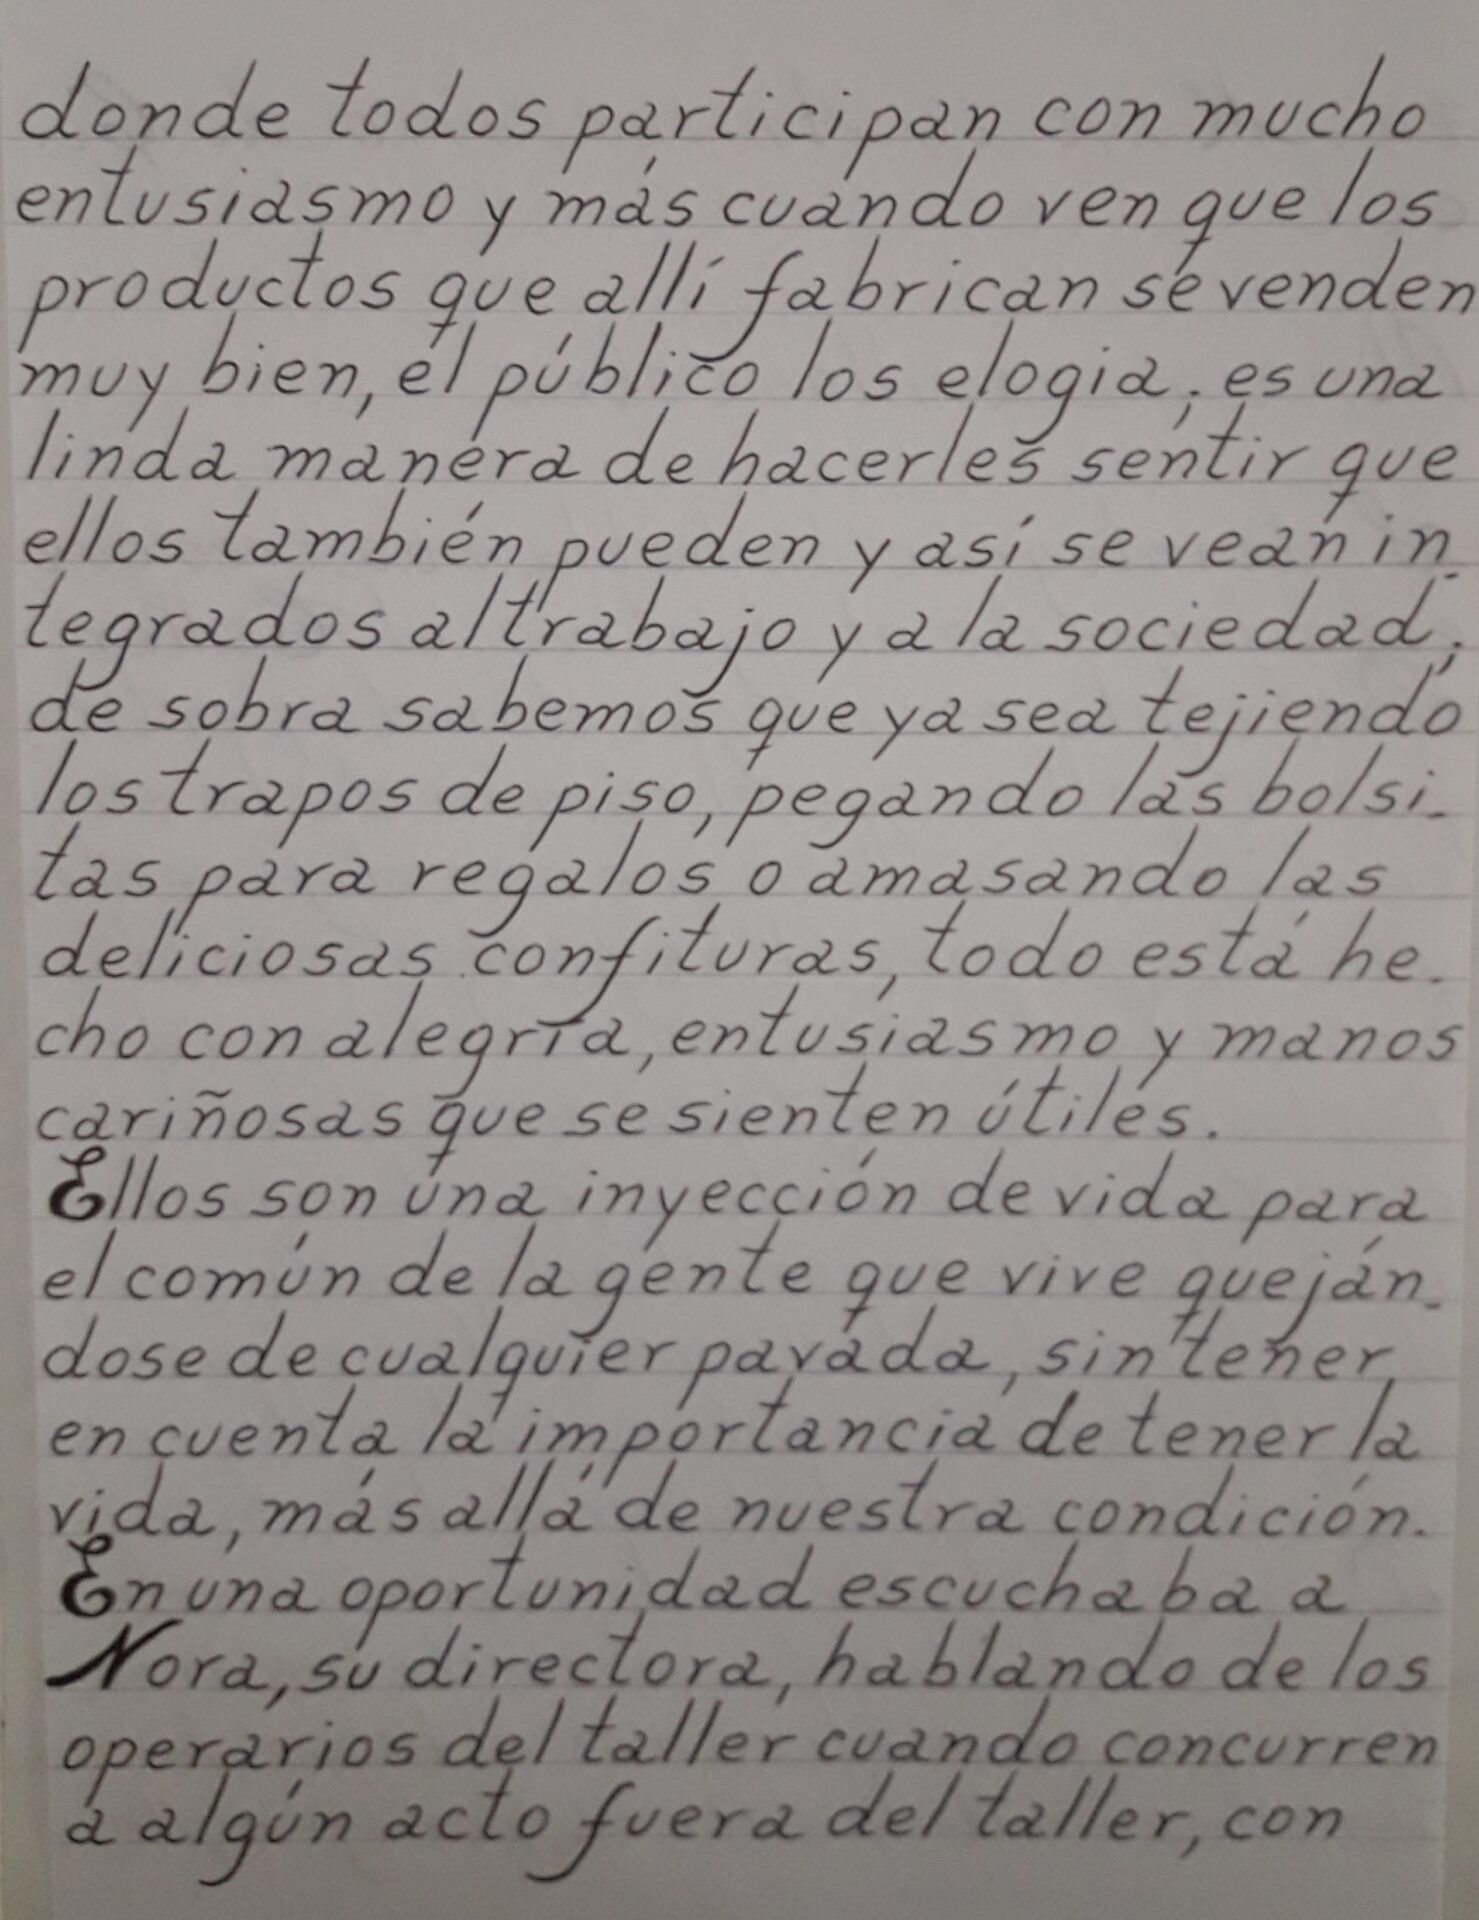 donde todos participan con mucho
entusiasmo y más cuando ven que los
productos que allí fabrican se venden
muy bien, el público los elogia; es una
linda manera de hacerles sentir que
ellos también pueden y así se vean in-
tegrados al trabajo y a la sociedad;
de sobra sabemos que ya sea tejiendo
los trapos de piso, pegando las bolsi-
tas para regalos o amasando las
deliciosas confituras, todo está he-
cho con alegría, entusiasmo y manos
cariñosas que se sienten útiles.
Ellos son una inyección de vida para
el común de la gente que vive queján-
dose de cualquier pavada, sin tener
en cuenta la importancia de tener la
vida, más allá de nuestra condición.
En una oportunidad escuchaba a
Nora, su directora, hablando de los
operarios del taller cuando concurren
a algún acto fuera del taller, con